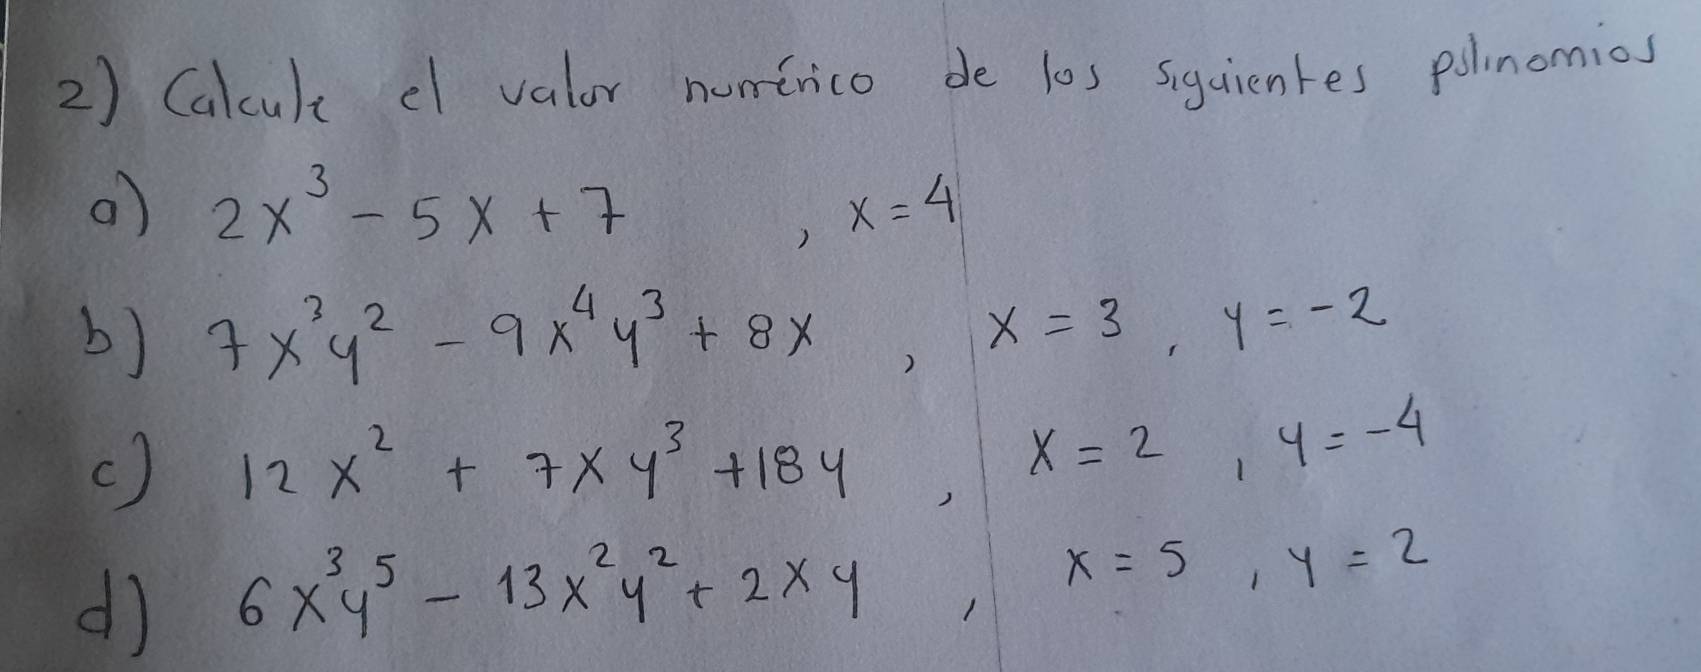 2) Calcule el valor numérico de los siguientes polinomios
a) 2x³ - 5x + 7 , x = 4
b) 7x³y² - 9x⁴y³ + 8x , x = 3 , y = -2
c) 12x² + 7xy³ + 18y , x = 2 , y = -4
d) 6x³y⁵ - 13x²y² + 2xy , x = 5 , y = 2